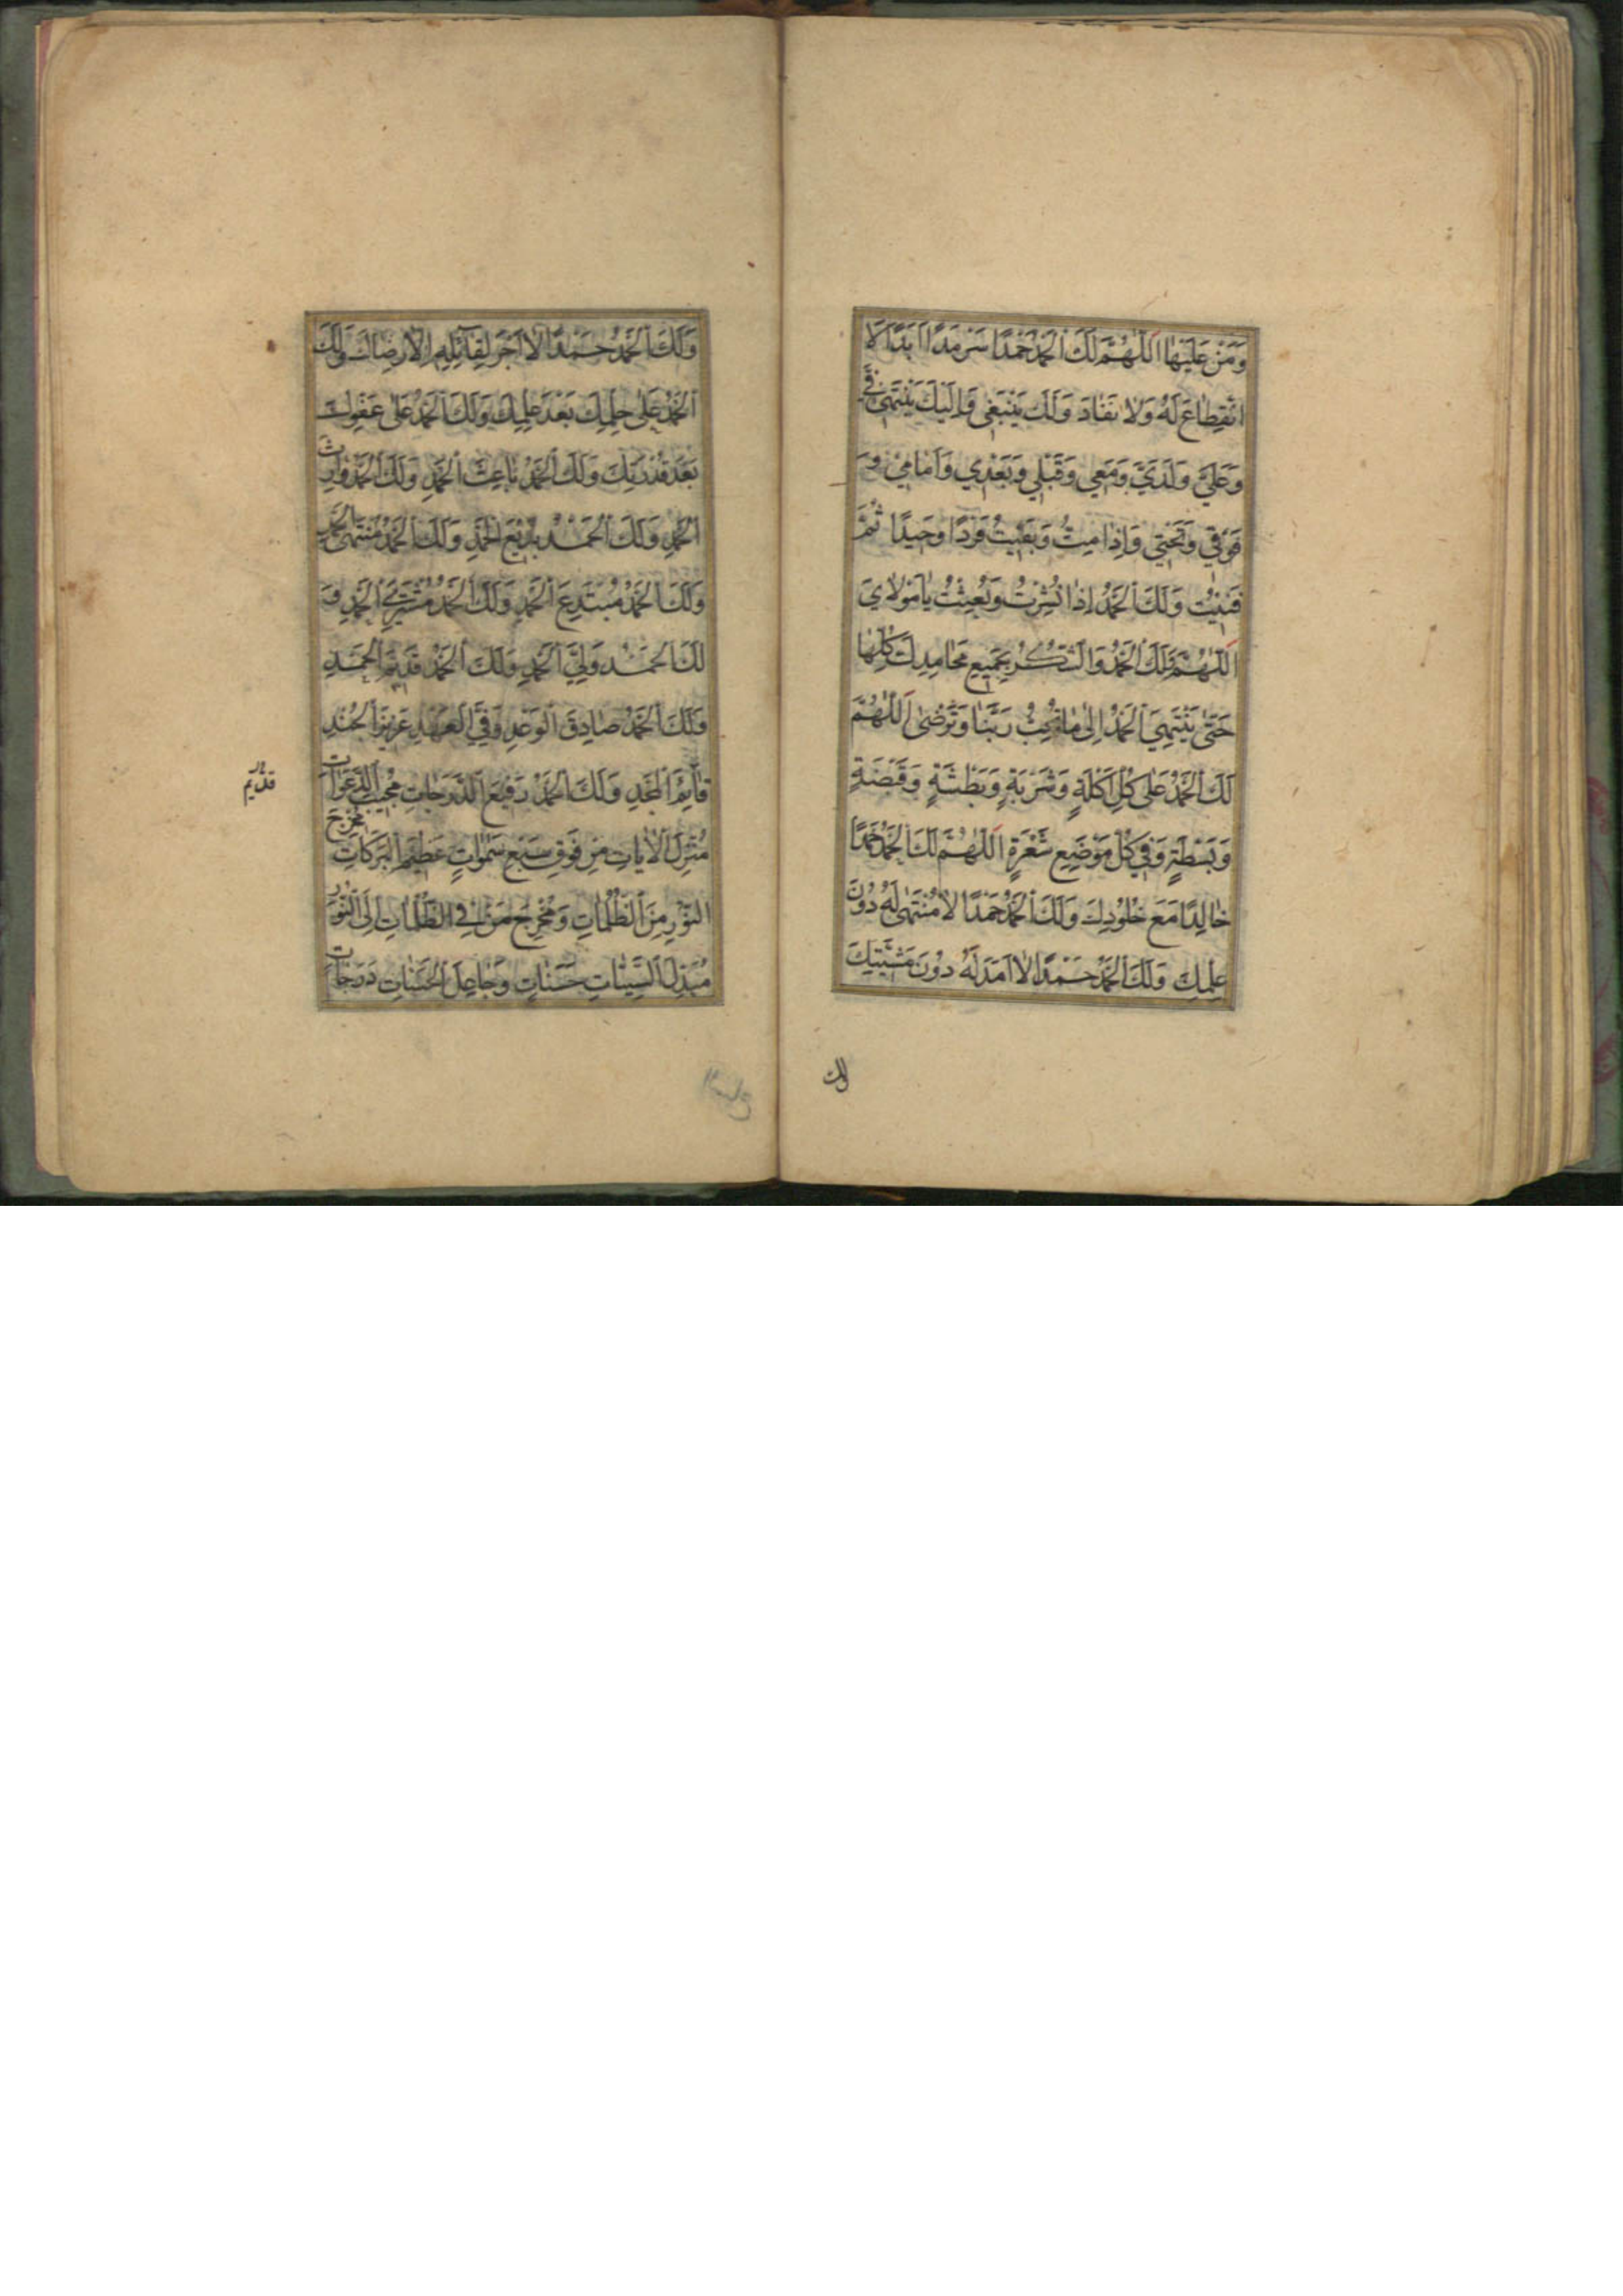 وَمَنْ عَلَيْهَا اَللّٰهُمَّ لَكَ الْحَمْدُ حَمْدًا سَرْمَدًا اَبَدًا لَا
انْقِطَاعَ لَهُ وَلَا نَفَادَ وَلَكَ يَنْبَغِي وَاِلَيْكَ يَنْتَهِي فِيَّ
وَعَلَيَّ وَلَدَيَّ وَمَعِي وَقَبْلِي وَبَعْدِي وَاَمَامِي وَ
فَوْقِي وَتَحْتِي وَاِذَا مِتُّ وَبَقِيتُ فَرْدًا وَحِيدًا ثُمَّ
فَنِيتُ وَلَكَ الْحَمْدُ اِذَا نُشِرْتُ وَبُعِثْتُ يَا مَوْلَايَ
اَللّٰهُمَّ وَلَكَ الْحَمْدُ وَالشُّكْرُ بِجَمِيعِ مَحَامِدِكَ كُلِّهَا
حَتّٰى يَنْتَهِيَ الْحَمْدُ اِلٰى مَا تُحِبُّ رَبَّنَا وَتَرْضٰى اَللّٰهُمَّ
لَكَ الْحَمْدُ عَلٰى كُلِّ اَكْلَةٍ وَشَرْبَةٍ وَبَطْشَةٍ وَقَبْضَةٍ
وَبَسْطَةٍ وَفِي كُلِّ مَوْضِعِ شَعْرَةٍ اَللّٰهُمَّ لَكَ الْحَمْدُ حَمْدًا
خَالِدًا مَعَ خُلُودِكَ وَلَكَ الْحَمْدُ حَمْدًا لَا مُنْتَهٰى لَهُ دُونَ
عِلْمِكَ وَلَكَ الْحَمْدُ حَمْدًا لَا اَمَدَ لَهُ دُونَ مَشِيَّتِكَ
ولك
وَلَكَ الْحَمْدُ حَمْدًا لَا اَجْرَ لِقَائِلِهِ اِلَّا رِضَاكَ وَلَكَ
الْحَمْدُ عَلٰى حِلْمِكَ بَعْدَ عِلْمِكَ وَلَكَ الْحَمْدُ عَلٰى عَفْوِكَ
بَعْدَ قُدْرَتِكَ وَلَكَ الْحَمْدُ بَاعِثَ الْحَمْدِ وَلَكَ الْحَمْدُ وَارِثَ
الْحَمْدِ وَلَكَ الْحَمْدُ بَدِيعَ الْحَمْدِ وَلَكَ الْحَمْدُ مُنْتَهَى الْحَمْدِ
وَلَكَ الْحَمْدُ مُبْتَدِعَ الْحَمْدِ وَلَكَ الْحَمْدُ مُشْتَرِيَ الْحَمْدِ وَ
لَكَ الْحَمْدُ وَلِيَّ الْحَمْدِ وَلَكَ الْحَمْدُ قَدِيمَ الْحَمْدِ
وَلَكَ الْحَمْدُ صَادِقَ الْوَعْدِ وَفِيَّ الْعَهْدِ عَزِيزَ الْجُنْدِ
قَائِمَ الْمَجْدِ وَلَكَ الْحَمْدُ رَفِيعَ الدَّرَجَاتِ مُجِيبَ الدَّعَوَاتِ
قديم
مُنْزِلَ الْاٰيَاتِ مِنْ فَوْقِ سَبْعِ سَمٰوَاتٍ عَظِيمَ الْبَرَكَاتِ مُخْرِجَ
النُّورِ مِنَ الظُّلُمَاتِ وَمُخْرِجَ مَنْ فِي الظُّلُمَاتِ اِلَى النُّورِ
مُبَدِّلَ السَّيِّئَاتِ حَسَنَاتٍ وَجَاعِلَ الْحَسَنَاتِ دَرَجَاتٍ